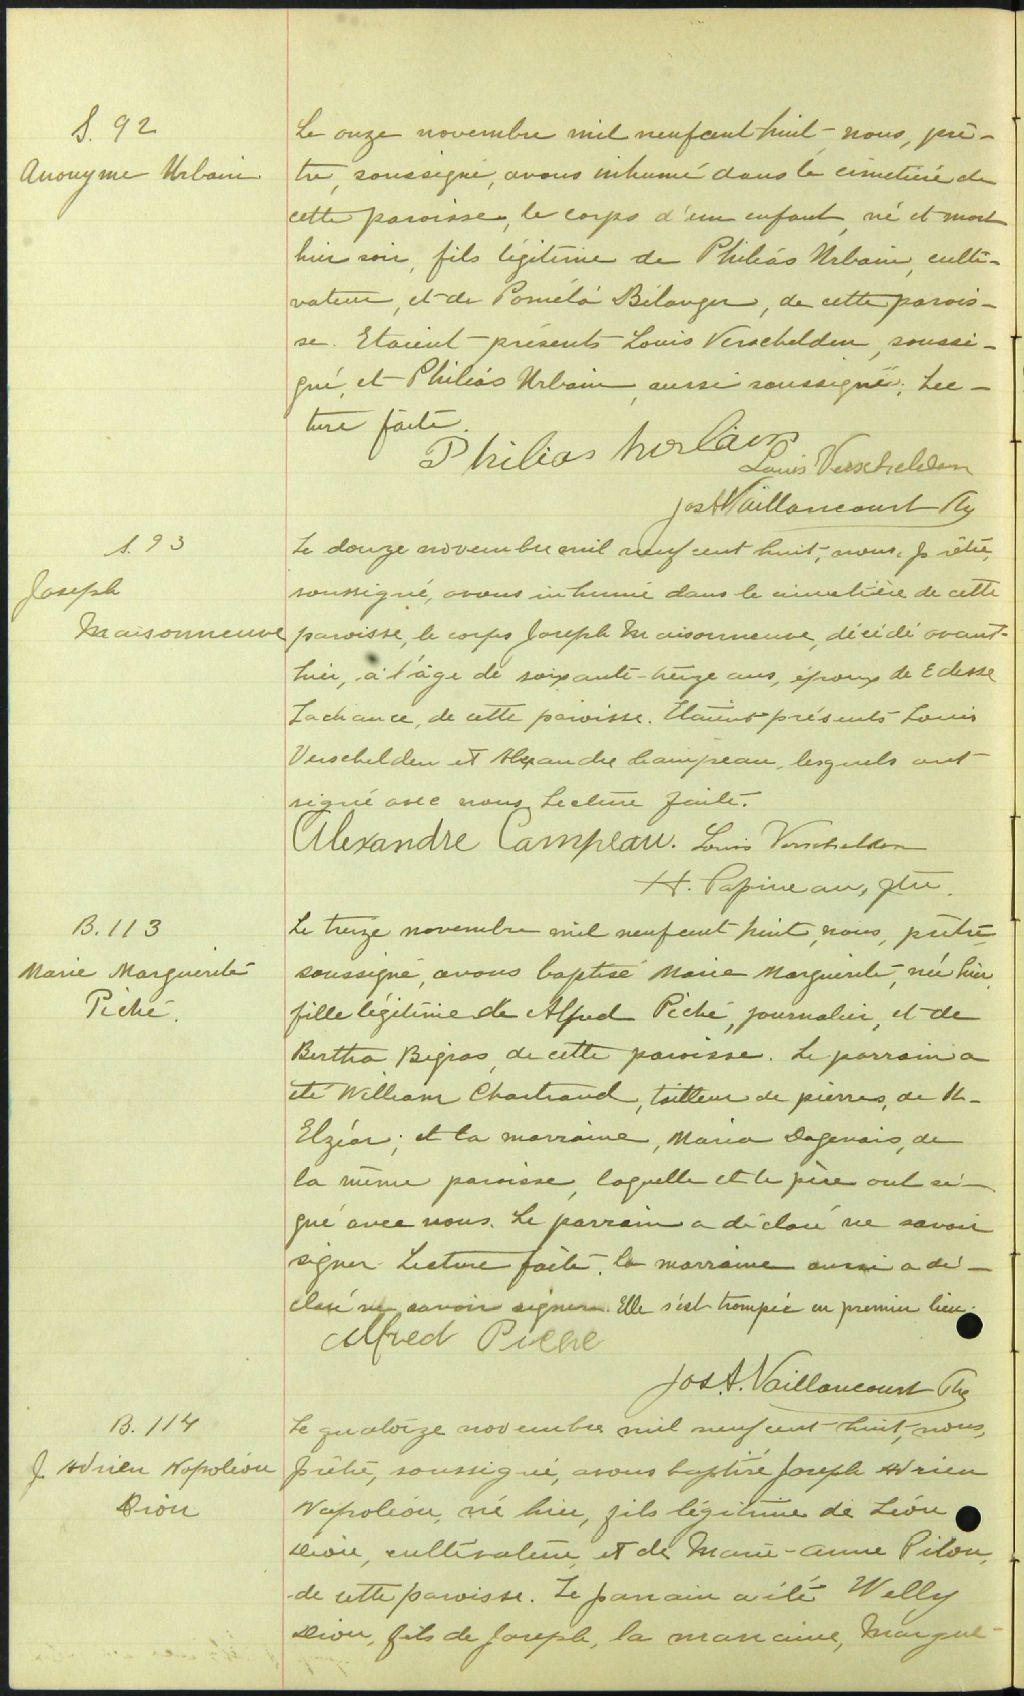 S. 92
Anonyme Urbain
Le onze novembre mil neufcent huit nous, prê-
tre, soussigné, avons inhumé dans le cimetière de
cette paroisse, le corps d'un enfant, né et mort
hier soir, fils légitime de Philias Urbain, culti-
vateur, et de Poméla Bélanger, de cette parois-
se. Etaient présents Louis Verschelden, soussi-
gné, et Philias Urbain, aussi soussigné. Lec-
ture faite.
Philias Urbain
Louis Verschelden
Jos A Vaillancourt Ptre
S. 93
Joseph
Maisonneuve
Le douze novembre mil neuf cent huit, nous, prêtre,
soussigné, avons inhumé dans le cimetière de cette
paroisse, le corps Joseph Maisonneuve, décédé avant-
hier, à l'âge de soixante-treize ans, époux de Edesse
Lachance, de cette paroisse. Etaient présents Louis
Verschelden et Alexandre Campeau, lesquels ont
signé avec nous. Lecture faite.
Alexandre Campeau. Louis Verschelden
H. Papineau, ptre.
B. 113
Marie Marguerite
Piché.
Le treize novembre mil neufcent huit, nous, prêtre
soussigné, avons baptisé Marie Marguerite, née hier,
fille légitime de Alfred Piché, journalier, et de
Bertha Bigras, de cette paroisse. Le parrain a
été William Chartrand, tailleur de pierres, de St-
Elzéar; et la marraine, Maria Dagenais, de
la même paroisse, laquelle et le père ont si-
gné avec nous. Le parrain a déclaré ne savoir
signer. Lecture faite. la marraine aussi a dé-
claré ne savoir signer. Elle s'est trompée en premier lieu.
Alfred Piché
Jos. A. Vaillancourt Ptre
B. 114
J Adrien Napoléon
Dion
Le quatorze novembre mil neuf cent huit, nous,
prêtre, soussigné, avons baptisé Joseph Adrien
Napoléon, né hier, fils légitime de Léon
Dion, cultivateur, et de Marie-Anne Pilon,
de cette paroisse. Le parrain a été Welly
Dion, fils de Joseph, la marraine, Margue-